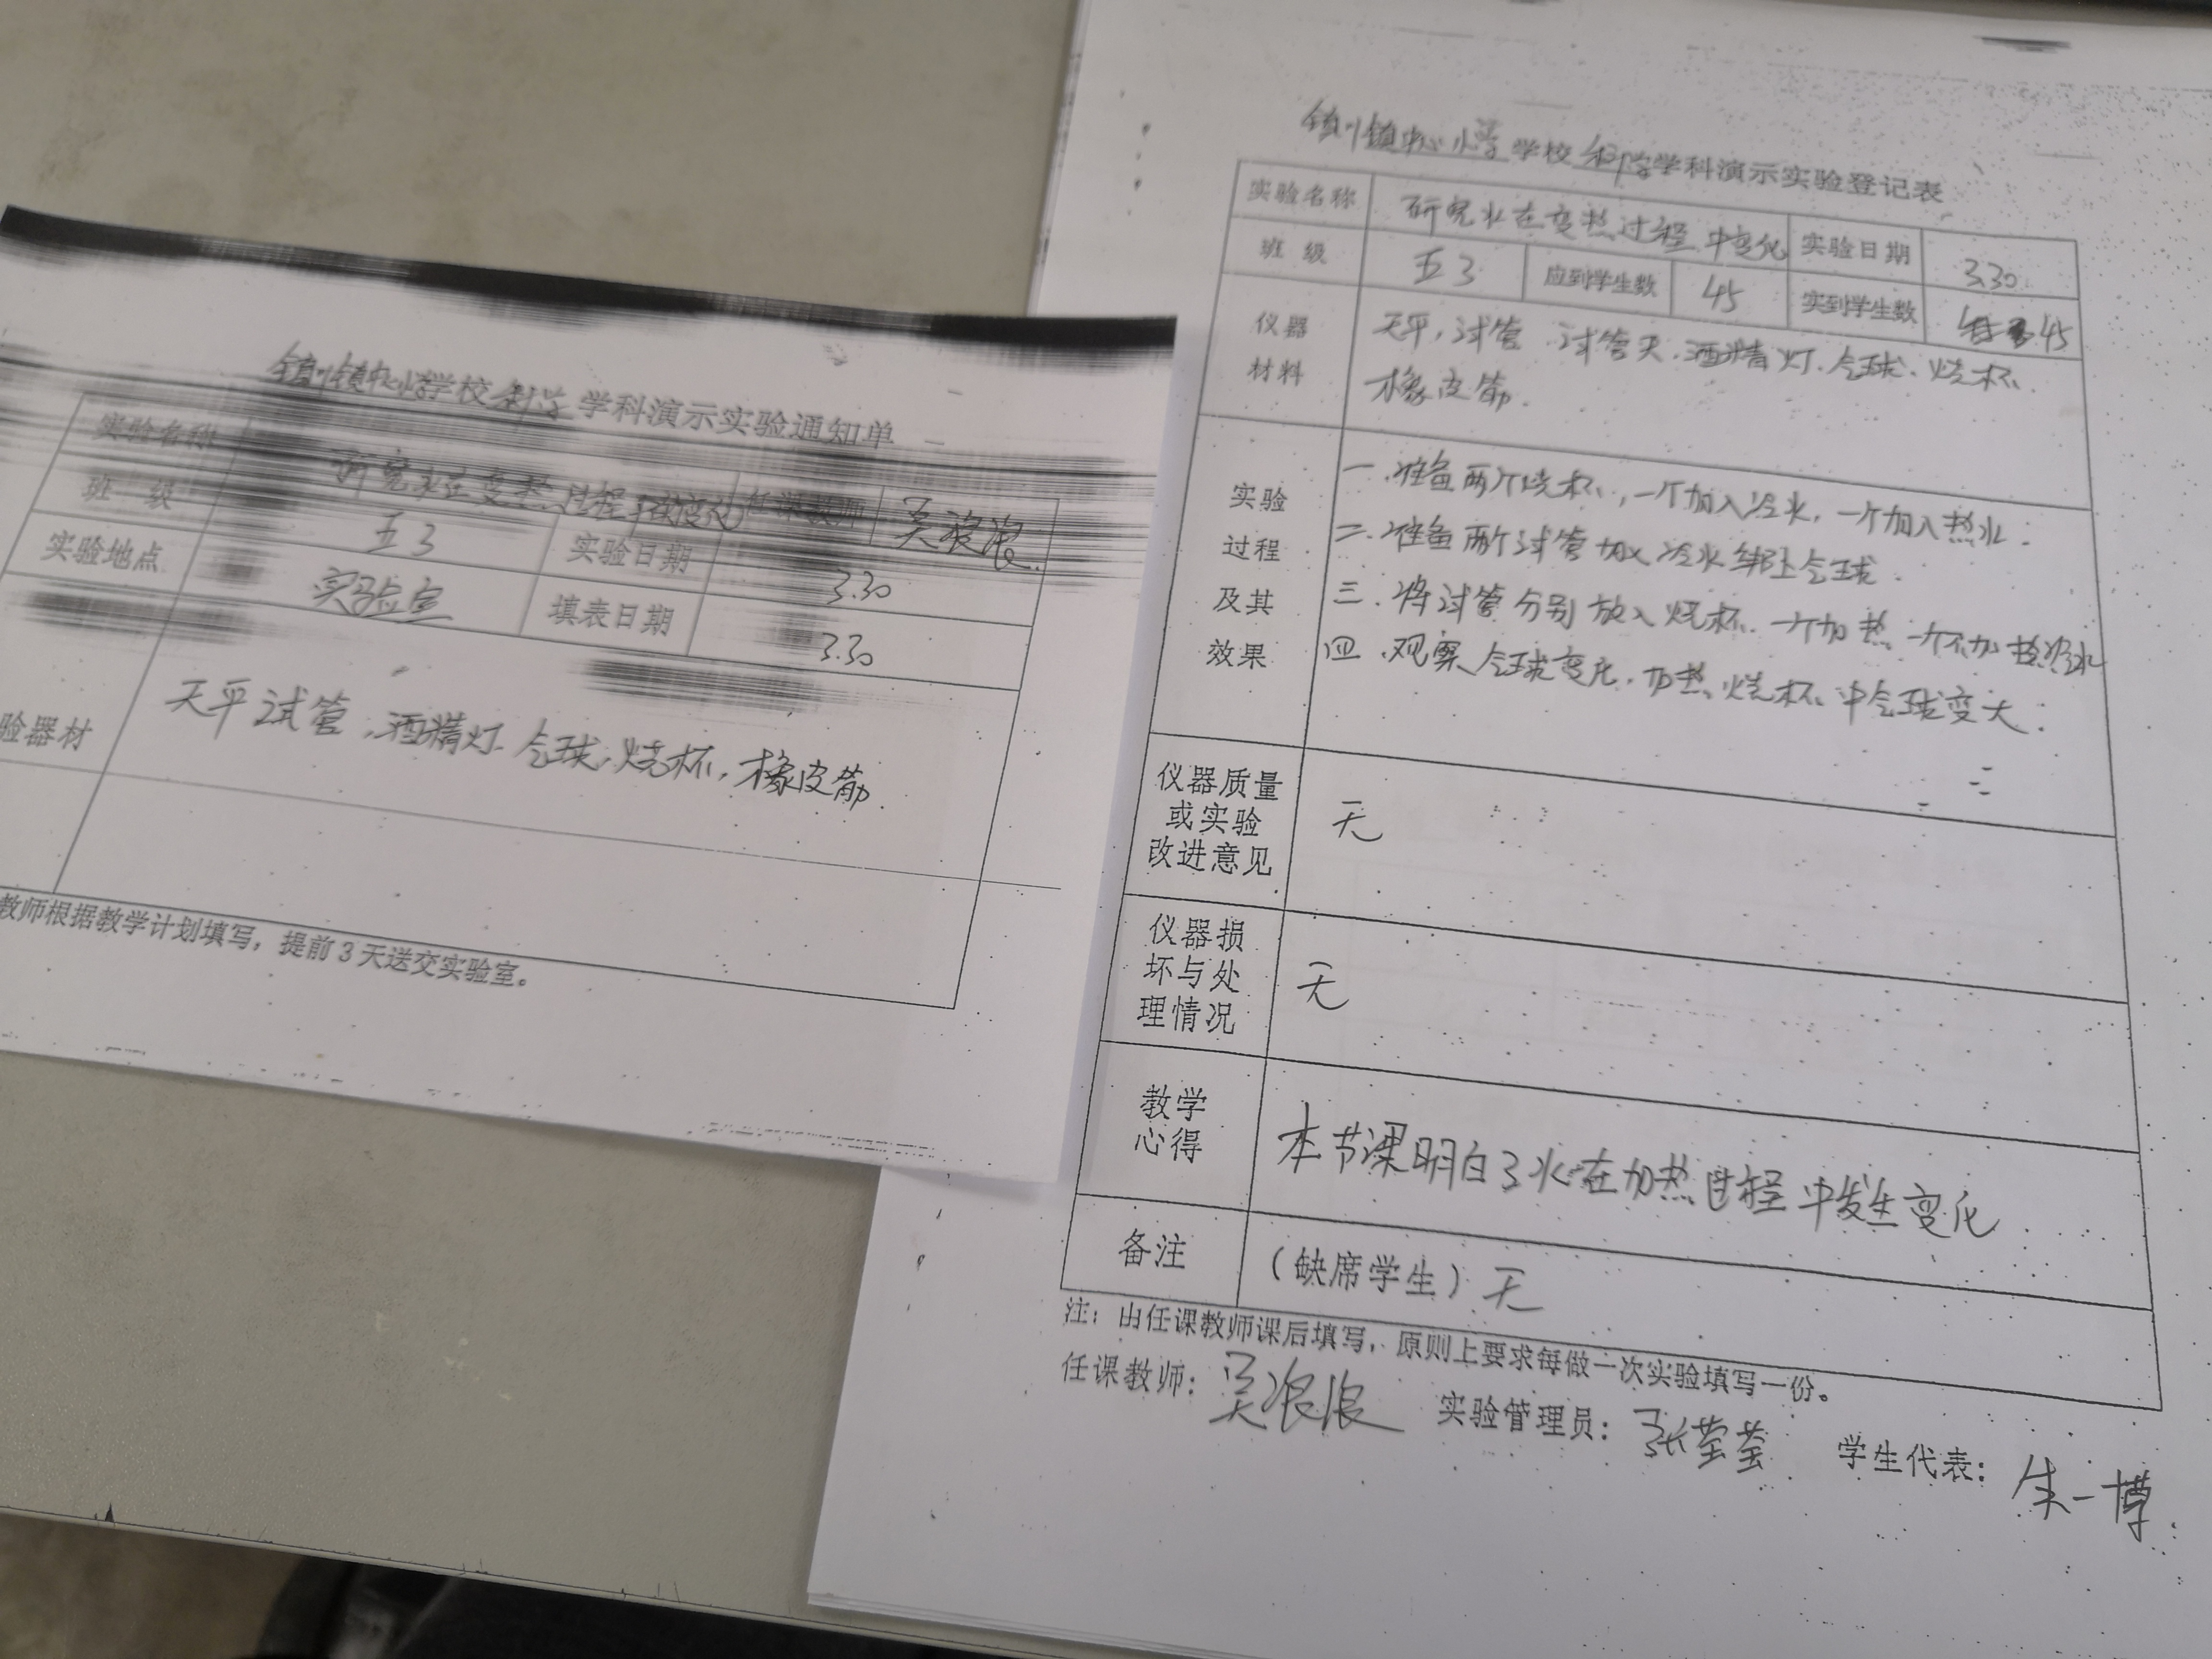 镇川镇中心小学学校科学学科演示实验通知单
实验名称 研究水在变热过程 变化 任课教师 吴浪浪
班 级 五3 实验日期 3.30
实验地点 实验室 填表日期 3.30
验器材 天平试管,酒精灯.气球,烧杯,橡皮筋.
教师根据教学计划填写,提前3天送交实验室。
镇川镇中心小学学校科学学科演示实验登记表
实验名称 研究水在变热过程中变化 实验日期 3.30
班 级 五3 应到学生数 45 实到学生数 45
仪器
材料
天平,试管.试管夹.酒精灯.气球.烧杯.
橡皮筋.
实验
过程
及其
效果
一.准备两个烧杯,一个加入冷水,一个加入热水.
二.准备两个试管加入冷水绑上气球.
三.将试管分别放入烧杯.一个加热一个不加热冷水
四.观察气球变化.加热烧杯中气球变大.
仪器质量
或实验
改进意见
无
仪器损
坏与处
理情况
无
教学
心得
本节课明白了水在加热过程中发生变化.
备注 (缺席学生)无
注:由任课教师课后填写,原则上要求每做一次实验填写一份。
任课教师:吴浪浪 实验管理员:张莹莹 学生代表:朱一博.